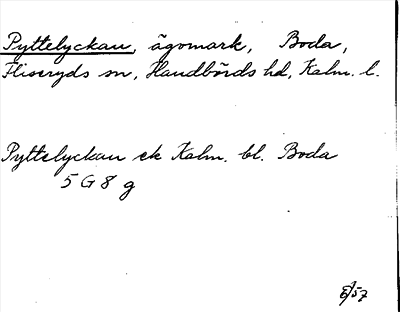 Pyttelyckan, ägomark, Boda,
Fliseryds sn, Handbörds hd, Kalm. l.
Pyttelyckan ek Kalm. bl. Boda
5 G 8 g